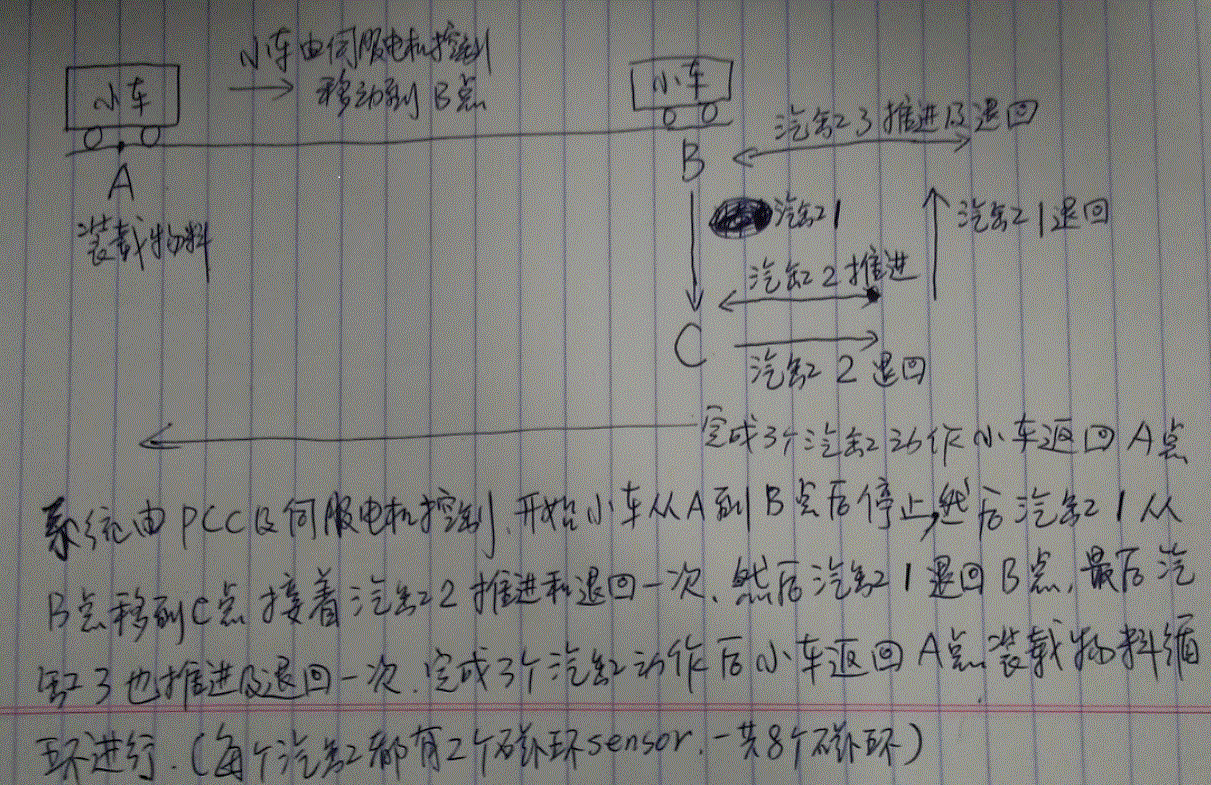 小车由伺服电机控制
移动到 B点
小车
小车
A
B
装载物料
汽缸3推进及退回
汽缸1
汽缸1退回
汽缸2推进
C
汽缸2退回
完成3个汽缸动作小车返回A点
系统由PCC及伺服电机控制,开始小车从A到B点后停止,然后汽缸1从
B点移到C点接着汽缸2推进和退回一次,然后汽缸1退回B点,最后汽
缸3也推进及退回一次.完成3个汽缸动作后小车返回A点装载物料循
环进行.(每个汽缸都有2个磁环sensor.一共8个磁环)